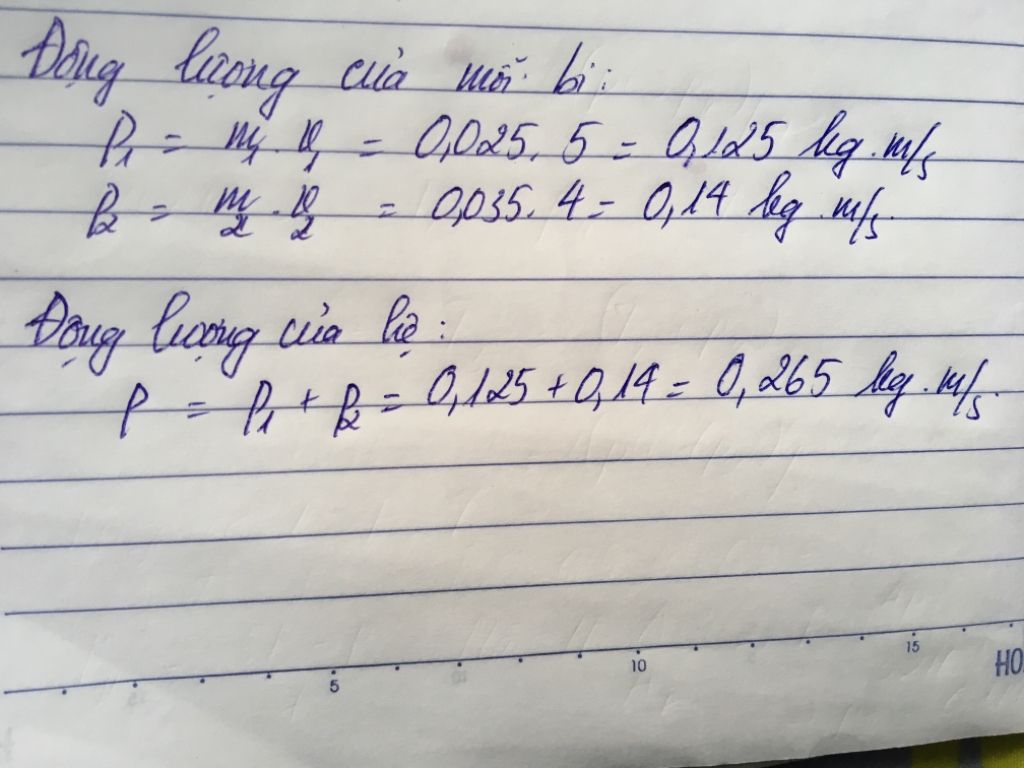 Động lượng của mỗi bi:
P₁ = m₁.v₁ = 0,025. 5 = 0,125 kg.m/s
P₂ = m₂.v₂ = 0,035. 4 = 0,14 kg.m/s.
Động lượng của hệ:
P = P₁ + P₂ = 0,125 + 0,14 = 0,265 kg.m/s.
5 10 15
HO